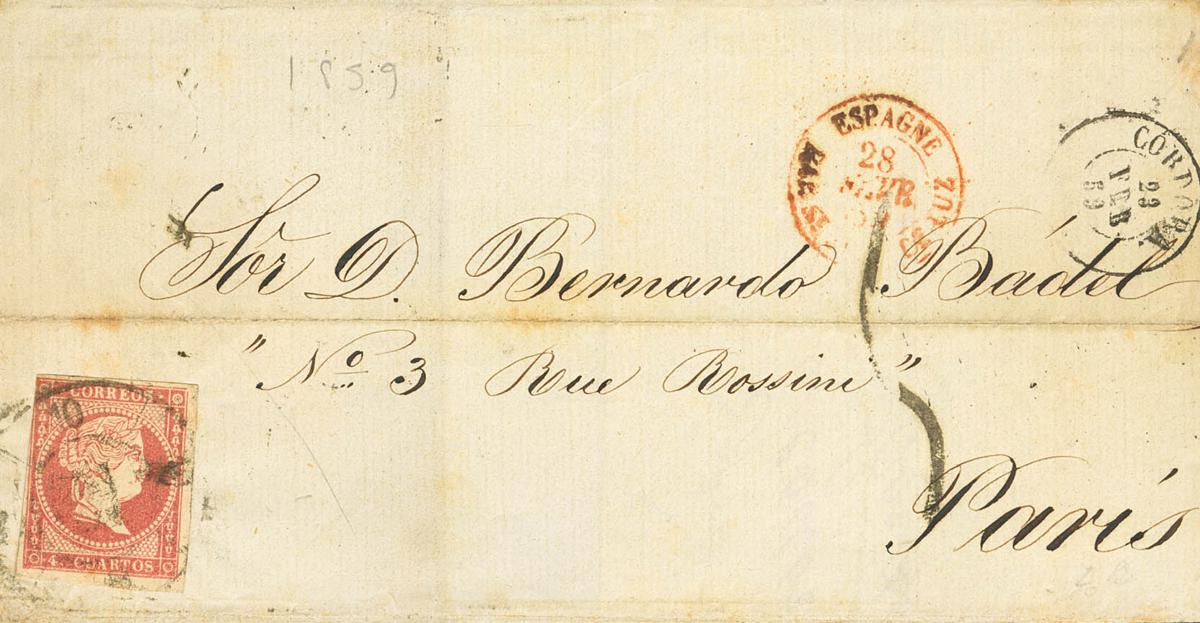 1859
ESPAGNE
28
CÓRDOBA
23
FEB
59
Sór D. Bernardo Bádel
" Nº 3 Rue Rossini "
París
CORREOS
10
4 CUARTOS